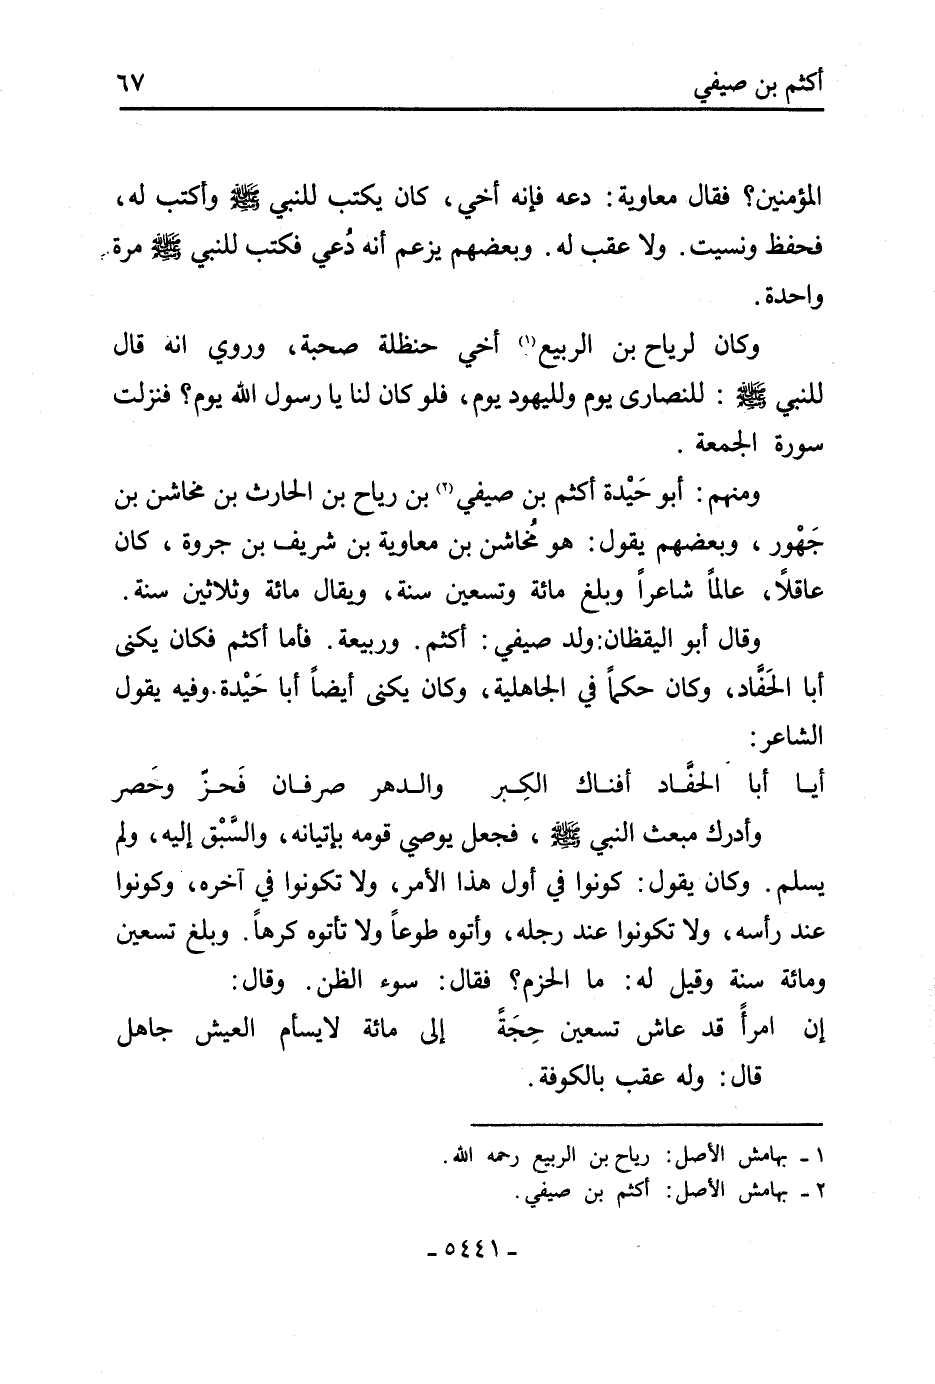 أكثم بن صيفي ٦٧
المؤمنين؟ فقال معاوية: دعه فإنه أخي، كان يكتب للنبي ﷺ وأكتب له،
فحفظ ونسيت. ولا عقب له. وبعضهم يزعم أنه دُعي فكتب للنبي ﷺ مرة
واحدة.
وكان لرياح بن الربيع(١) أخي حنظلة صحبة، وروي انه قال
للنبي ﷺ : للنصارى يوم ولليهود يوم، فلو كان لنا يا رسول الله يوم؟ فنزلت
سورة الجمعة .
ومنهم: أبو حَيْدة أكثم بن صيفي(٢) بن رياح بن الحارث بن مخاشن بن
جَهْور ، وبعضهم يقول: هو مُخاشن بن معاوية بن شريف بن جروة ، كان
عاقلاً، عالماً شاعراً وبلغ مائة وتسعين سنة، ويقال مائة وثلاثين سنة.
وقال أبو اليقظان:ولد صيفي: أكثم. وربيعة. فأما أكثم فكان يكنى
أبا الحَفَّاد، وكان حكماً في الجاهلية، وكان يكنى أيضاً أبا حَيْدة.وفيه يقول
الشاعر:
أيا أبا الحفَّاد أفناك الكِبر والدهر صرفان فَحزّ وخَصر
وأدرك مبعث النبي ﷺ ، فجعل يوصي قومه بإتيانه، والسَّبْق إليه، ولم
يسلم. وكان يقول: كونوا في أول هذا الأمر، ولا تكونوا في آخره، وكونوا
عند رأسه، ولا تكونوا عند رجله، وأتوه طوعاً ولا تأتوه كرهاً. وبلغ تسعين
ومائة سنة وقيل له: ما الحزم؟ فقال: سوء الظن. وقال:
إن امرأً قد عاش تسعين حِجَةً إلى مائة لايسأم العيش جاهل
قال: وله عقب بالكوفة.
١ ـ بهامش الأصل: رياح بن الربيع رحمه الله.
٢ ـ بهامش الأصل: أكثم بن صيفي.
ـ ٥٤٤١ ـ